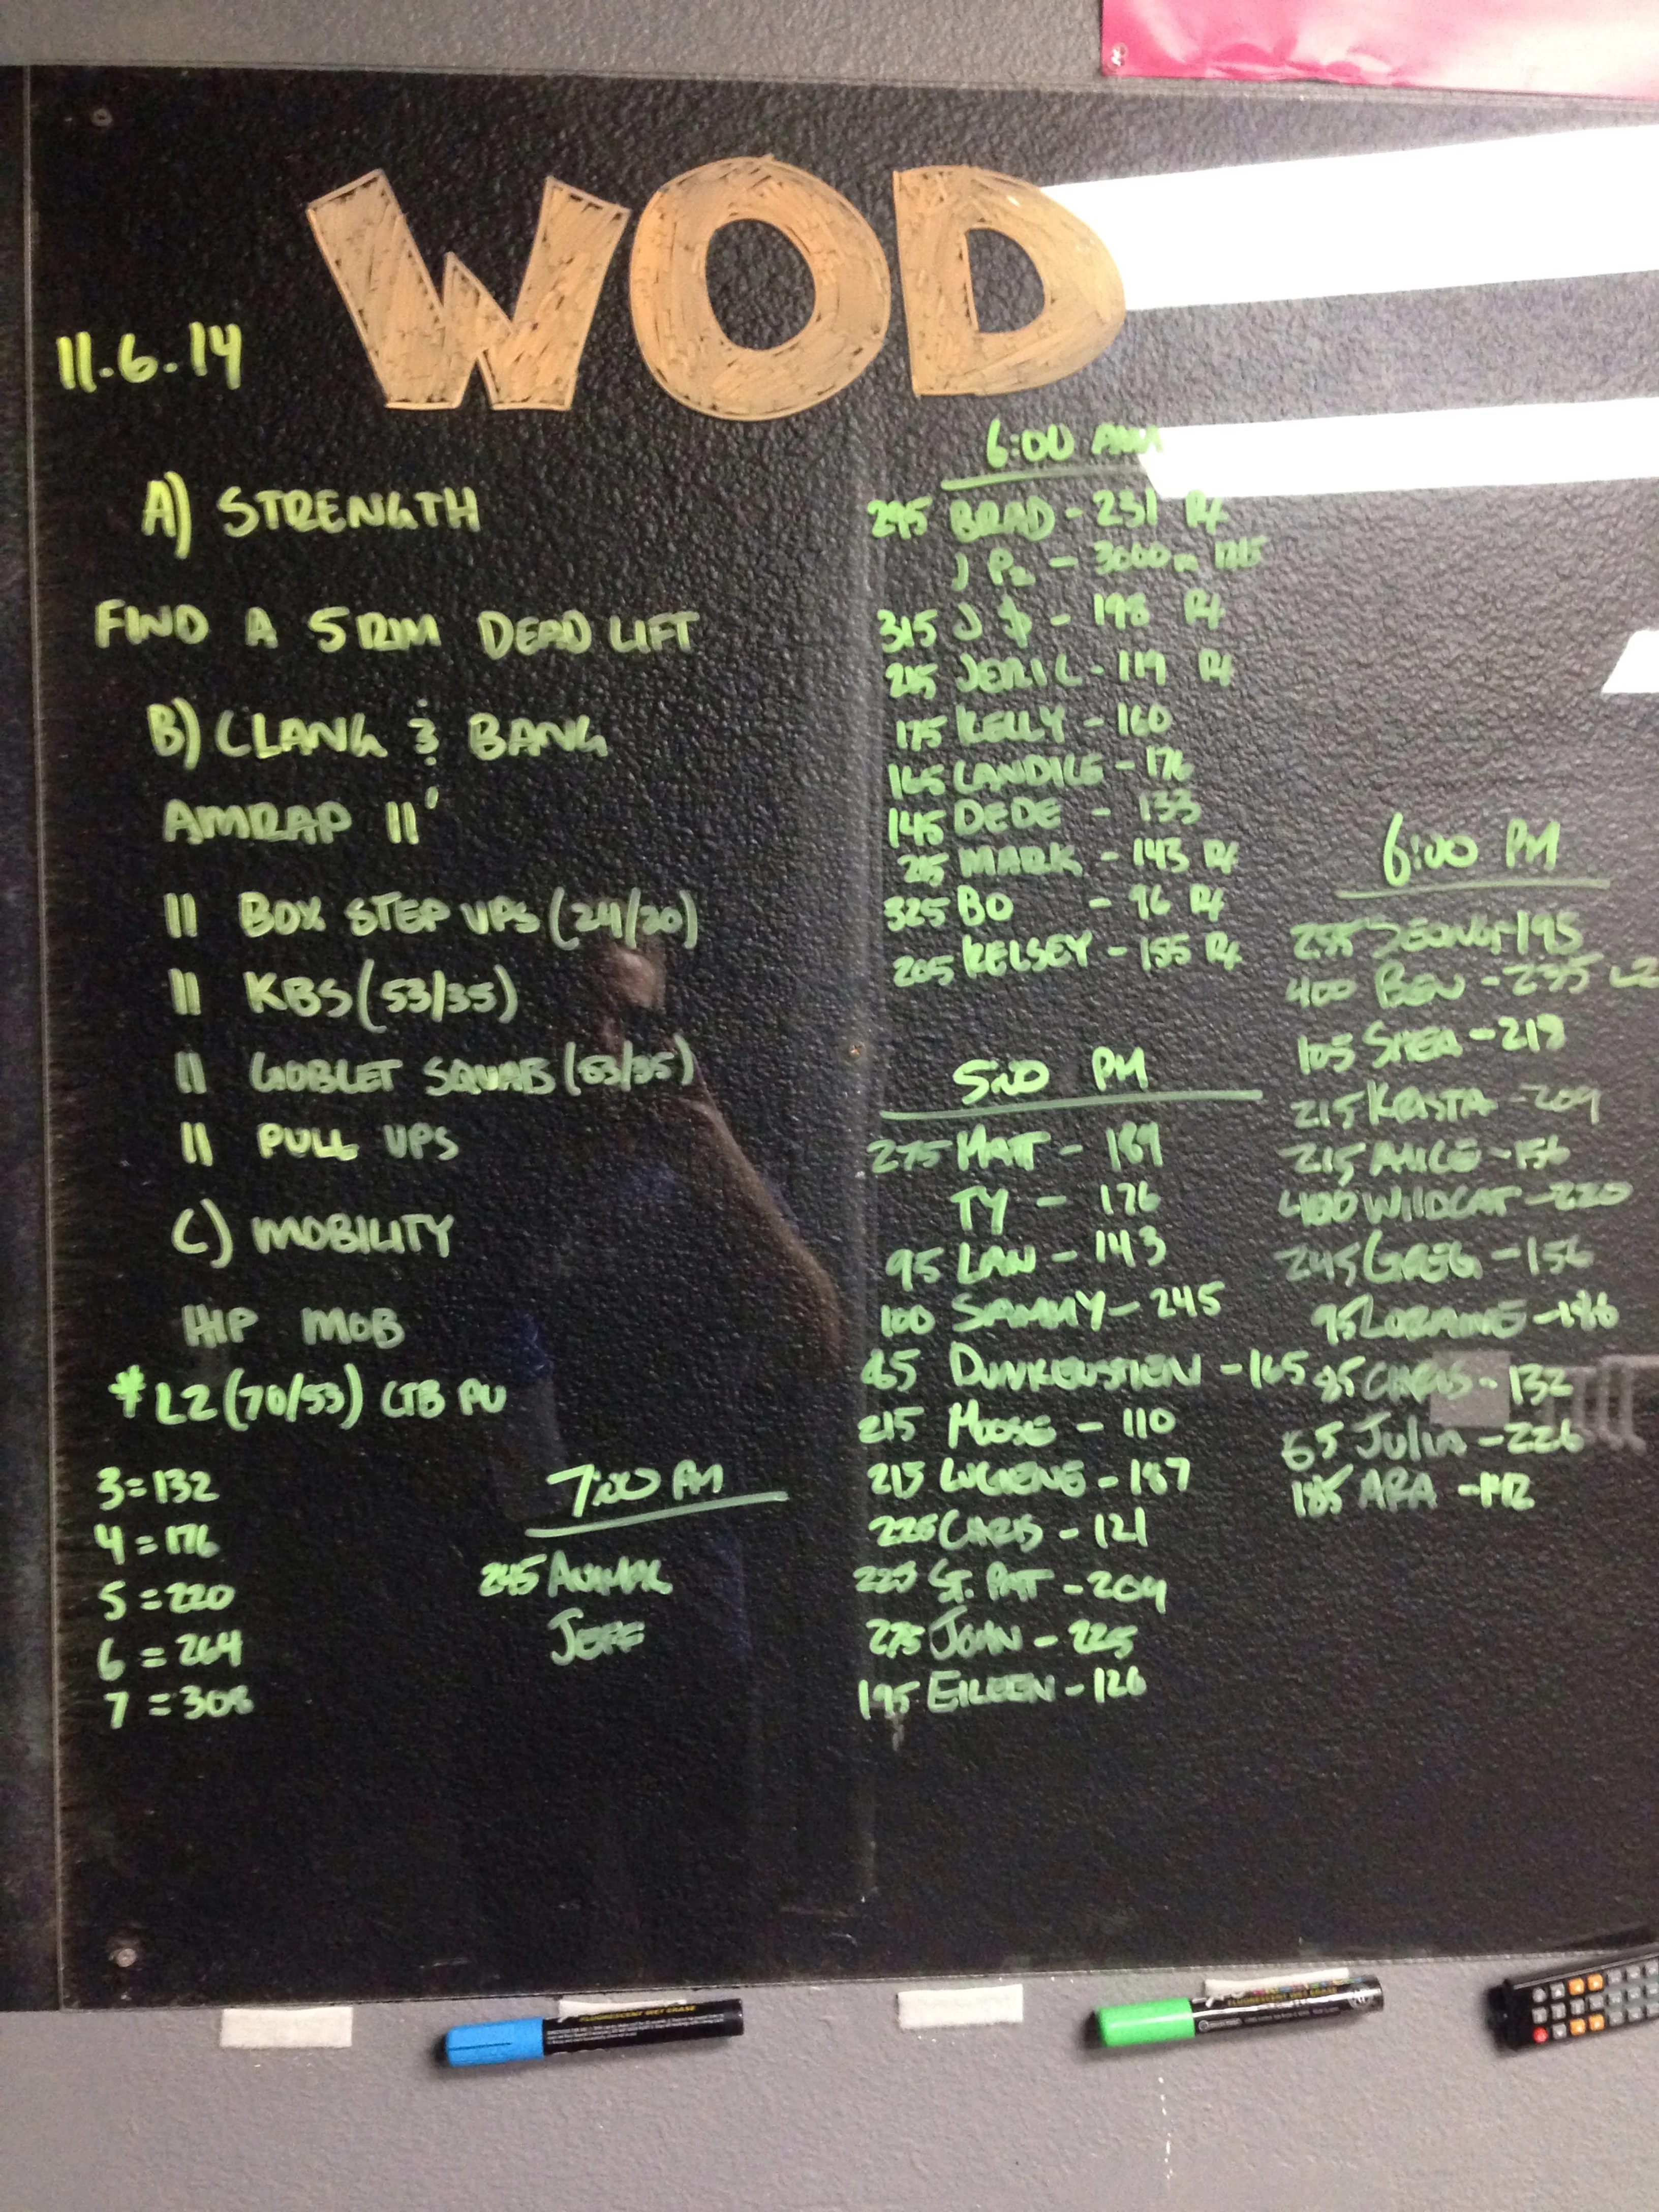 WOD
11.6.14
A) STRENGTH
FIND A 5 RM DEAD LIFT
B) CLANG & BANG
AMRAP 11'
11 BOX STEP UPS (24/20)
11 KBS (53/35)
11 GOBLET SQUATS (53/35)
11 PULL UPS
C) MOBILITY
HIP MOB
* L2 (70/53) CTB PU
3 = 132
4 = 176
5 = 220
6 = 264
7 = 308
7:00 PM
245
JEFF
6:00 AM
295 BRAD - 231 RX
J P2 - 3000m
315 J $ - 198 RX
215 JERIC - 119 RX
175 KELLY - 160
165 LANDICE - 176
145 DEDE - 133
MARK - 143 RX
325 BO - 96 RX
205 KELSEY - 155 RX
5:00 PM
275 MATT - 189
TY - 176
95 LAN - 143
100 SAMMY - 245
- 165
215 MOOSE - 110
215 LUCIENE - 187
225 CHRIS - 121
225 ST. PAT - 209
275 JOHN - 225
195 EILEEN - 126
6:00 PM
255 - 195
400 BEN - 235 L2
105 SHEA - 218
215 KRISTA - 209
215 ALICE - 156
400 WILDCAT - 220
245 GREG - 156
95 LORAINE - 186
85 CHRIS - 132
65 JULIA - 226
185 ARA - 142
FLUORESCENT WET ERASE
FLUORESCENT WET ERASE